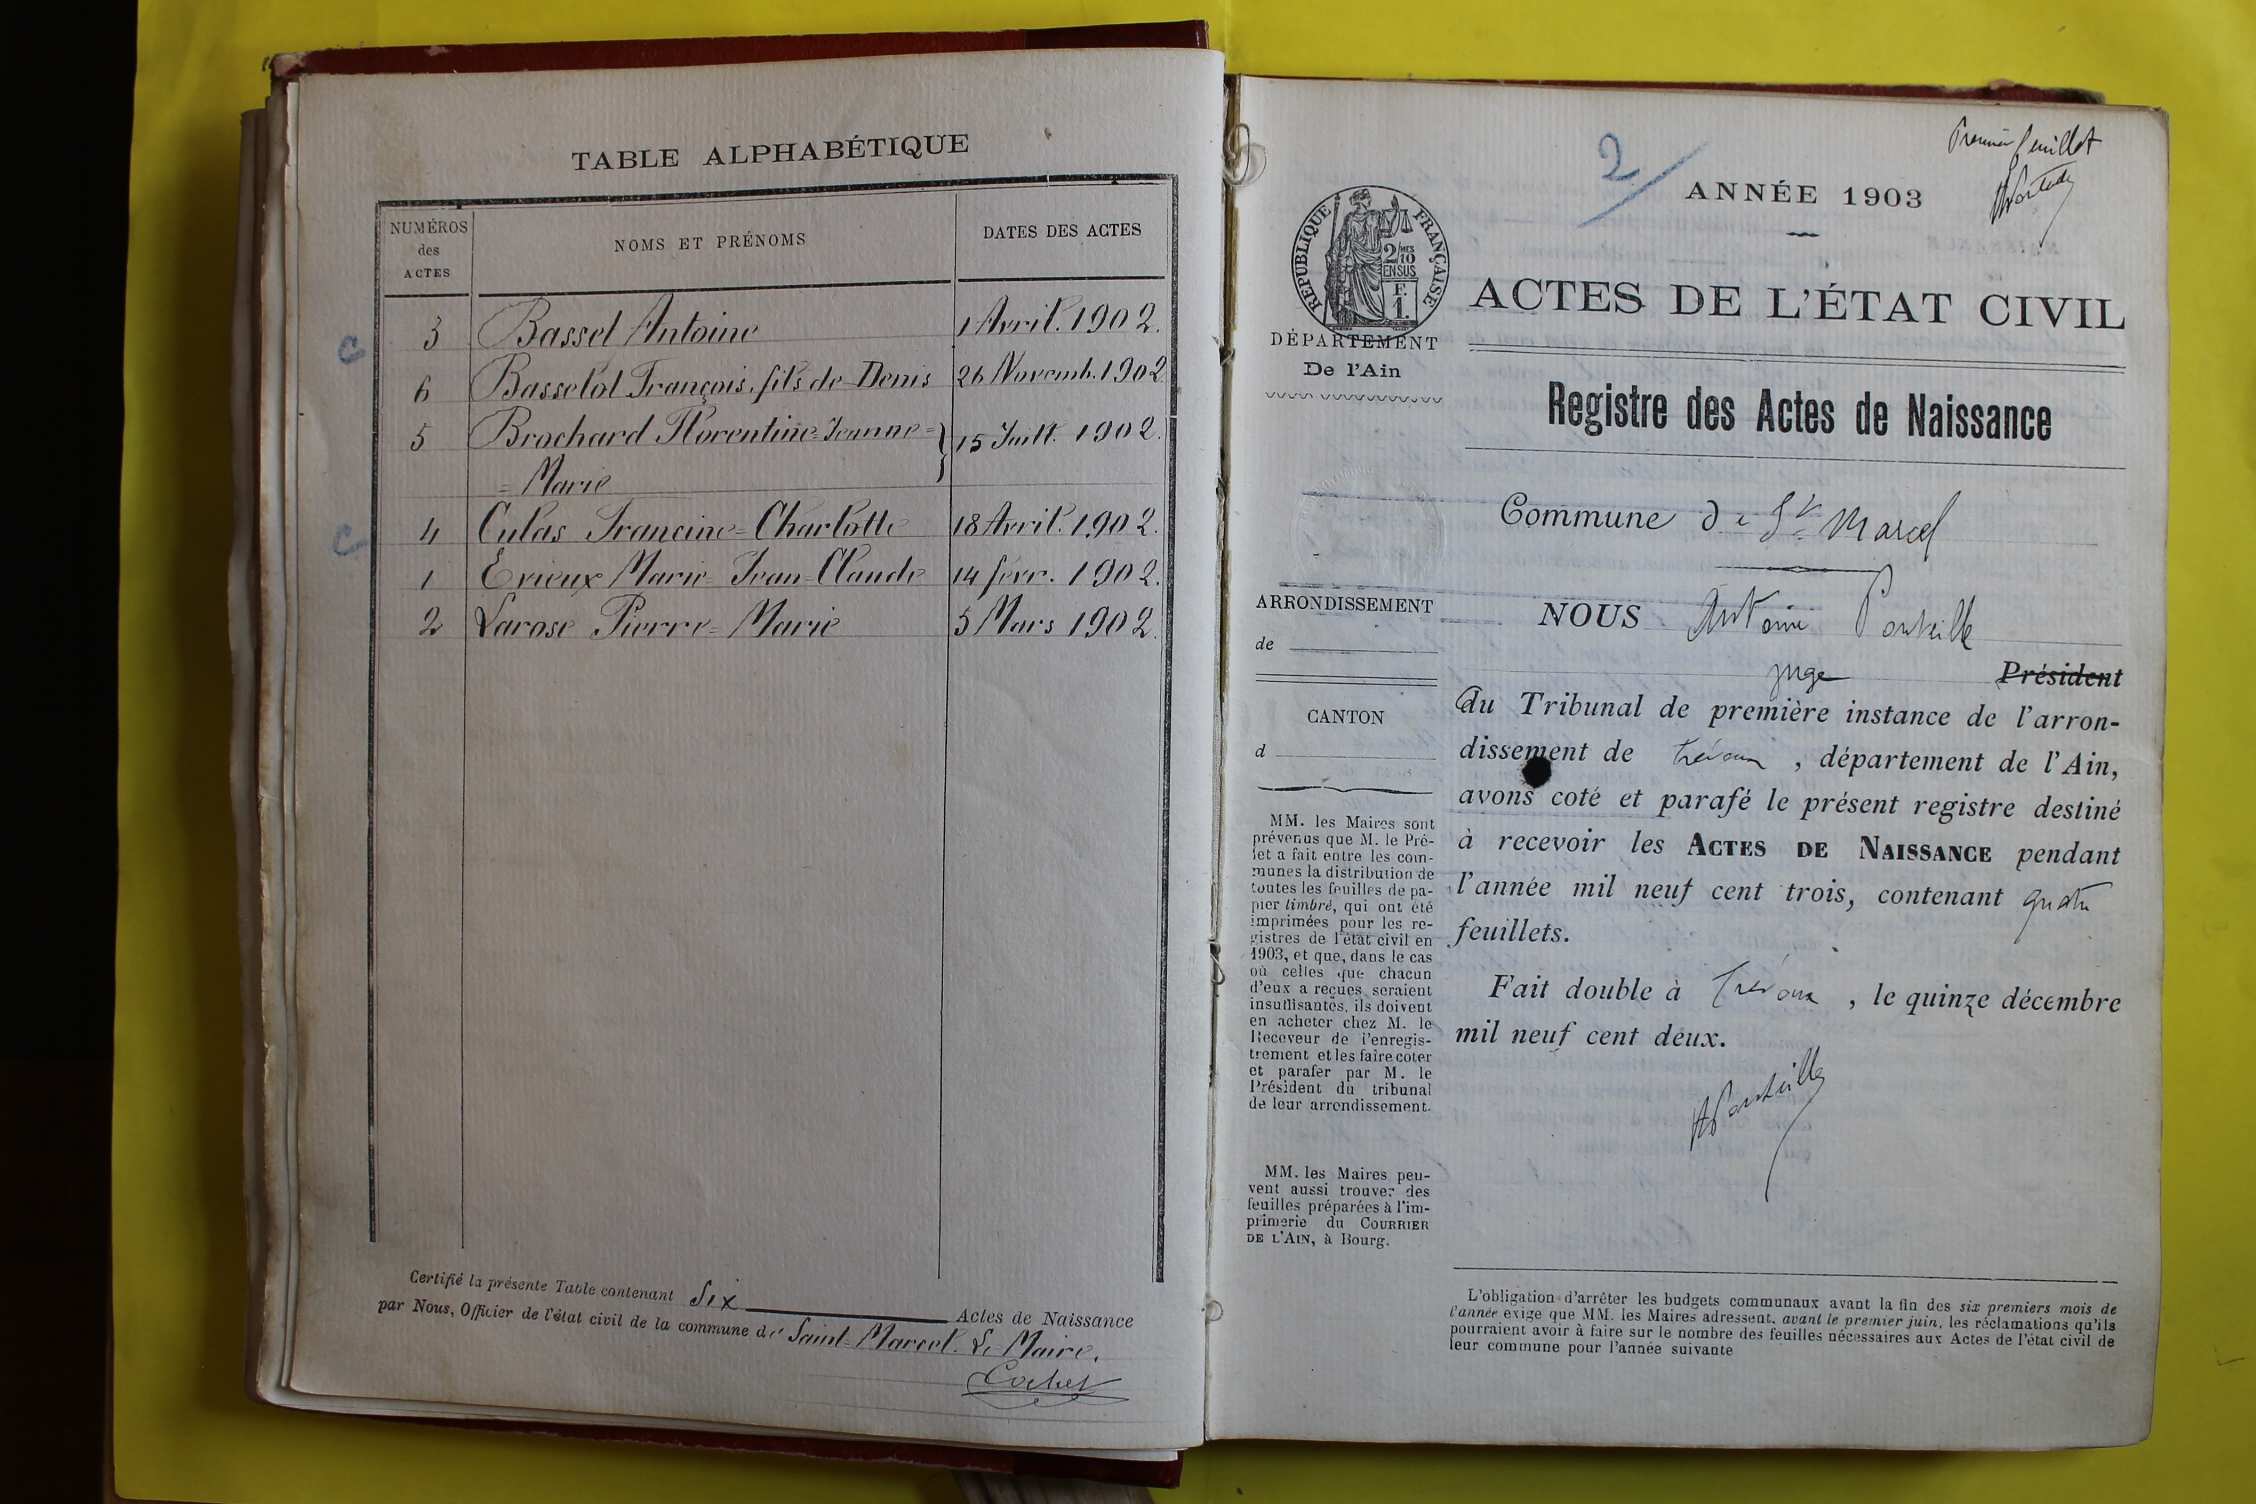 TABLE ALPHABÉTIQUE
NUMÉROS des ACTES
NOMS ET PRÉNOMS
DATES DES ACTES
3 Bassel Antoine 1 Avril. 1902.
c
6 Basselot François, fils de Denis 26 Novemb. 1902
5 Brochard Florentine=Jeanne= } 15 Juill. 1902.
= Marie
c
4 Culas Francine=Charlotte 18 Avril. 1902.
1 Erieux Marie=Jean=Claude 14 févr. 1902.
2 Larose Pierre=Marie 5 Mars 1902.
Certifié la présente Table contenant Six Actes de Naissance
par Nous, Officier de l'état civil de la commune de Saint=Marcel. Le Maire.
Cochet
Premier feuillet
2/
ANNÉE 1903
RÉPUBLIQUE FRANÇAISE
2/10 MES
EN SUS
F.
1.
ACTES DE L'ÉTAT CIVIL
DÉPARTEMENT
De l'Ain
Registre des Actes de Naissance
Commune de St Marcel
ARRONDISSEMENT
de
CANTON
d
NOUS Antoine Ponteille
juge Président
du Tribunal de première instance de l'arron-
dissement de Trévoux , département de l'Ain,
avons coté et parafé le présent registre destiné
à recevoir les ACTES DE NAISSANCE pendant
l'année mil neuf cent trois, contenant quatre
feuillets.
Fait double à Trévoux , le quinze décembre
mil neuf cent deux.
A Ponteille
MM. les Maires sont
prévenus que M. le Pré-
fet a fait entre les com-
munes la distribution de
toutes les feuilles de pa-
pier timbré, qui ont été
imprimées pour les re-
gistres de l'état civil en
1903, et que, dans le cas
où celles que chacun
d'eux a reçues seraient
insuffisantes, ils doivent
en acheter chez M. le
Receveur de l'enregis-
trement et les faire coter
et parafer par M. le
Président du tribunal
de leur arrondissement.
MM. les Maires peu-
vent aussi trouver des
feuilles préparées à l'im-
primerie du COURRIER
DE L'AIN, à Bourg.
L'obligation d'arrêter les budgets communaux avant la fin des six premiers mois de
l'année exige que MM. les Maires adressent, avant le premier juin, les réclamations qu'ils
pourraient avoir à faire sur le nombre des feuilles nécessaires aux Actes de l'état civil de
leur commune pour l'année suivante